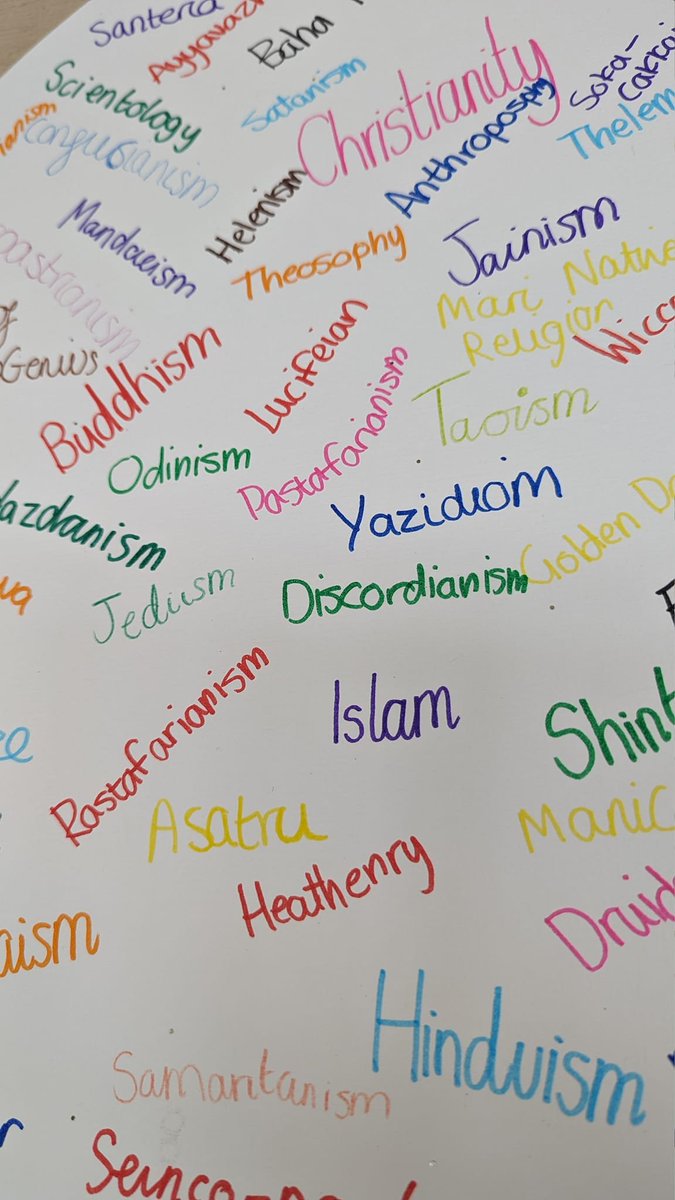 Santeria
Ayyavazhi
Baha
Scientology
Satanism
Christianity
Soka-
Gakkai
anism
Confusianism
Anthroposphy
Thelem
Mandaeism
Helenism
Theosophy
Jainism
oastrianism
Mari Native
Religion
of
Genius
Buddhism
Lucifeian
Wicca
Pastafarianism
Taoism
Odinism
Yazidiom
azdanism
Golden Da
Jediism
Discordianism
Islam
Rastafarianism
Shint
Asatru
Manic
Heathenry
Druid
aism
Hinduism
Samaritanism